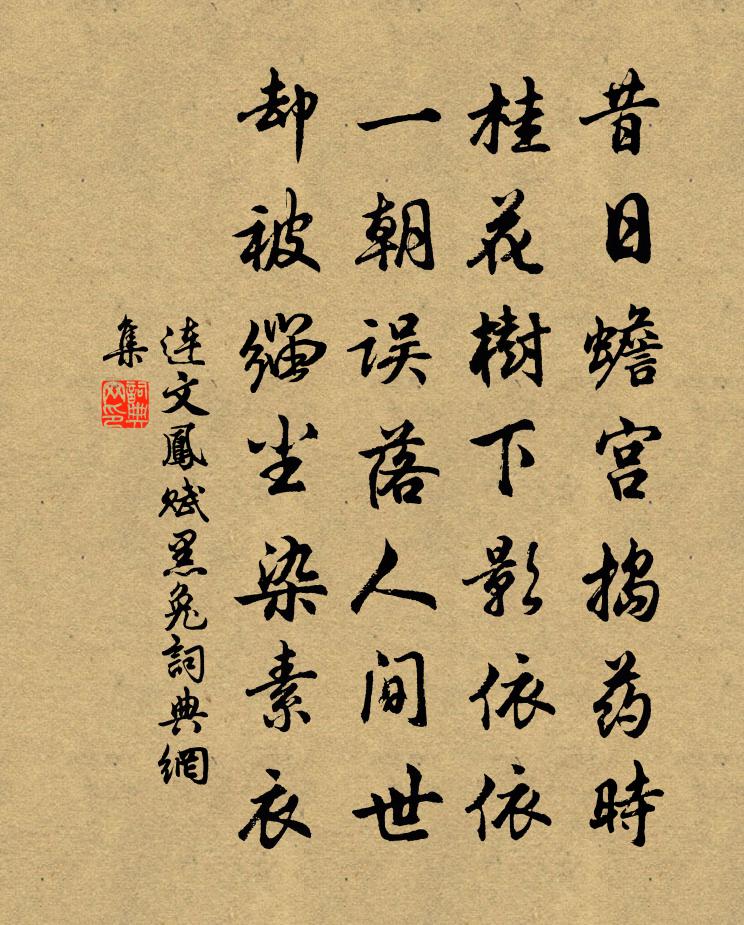 昔日蟾宫捣药時
桂花樹下影依依
一朝误落人间世
却被缁尘染素衣
连文鳳赋黑兔詞典網
集
詞典網印